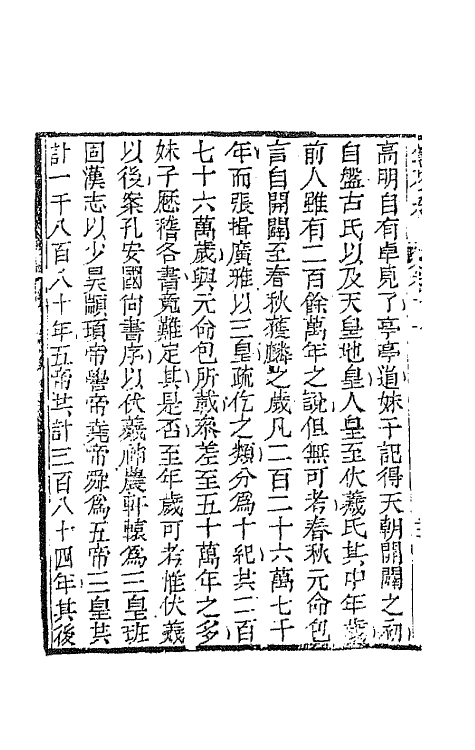 高明自有卓見了亭亭道妹子記得天朝開闢之初
自盤古氏以及天皇地皇人皇至伏羲氏其中年歲
前人雖有二百餘萬年之說但無可考春秋元命包
言自開闢至春秋獲麟之歲凡二百二十六萬七千
年而張揖廣雅以三皇疏仡之類分為十紀共二百
七十六萬歲與元命包所載叅差至五十萬年之多
妹子歷稽各書竟難定其是否至年歲可考惟伏羲
以後案孔安國尙書序以伏羲神農軒轅為三皇班
固漢志以少昊顓頊帝嚳帝堯帝舜為五帝三皇共
計一千八百八十年五帝共計三百八十四年其後